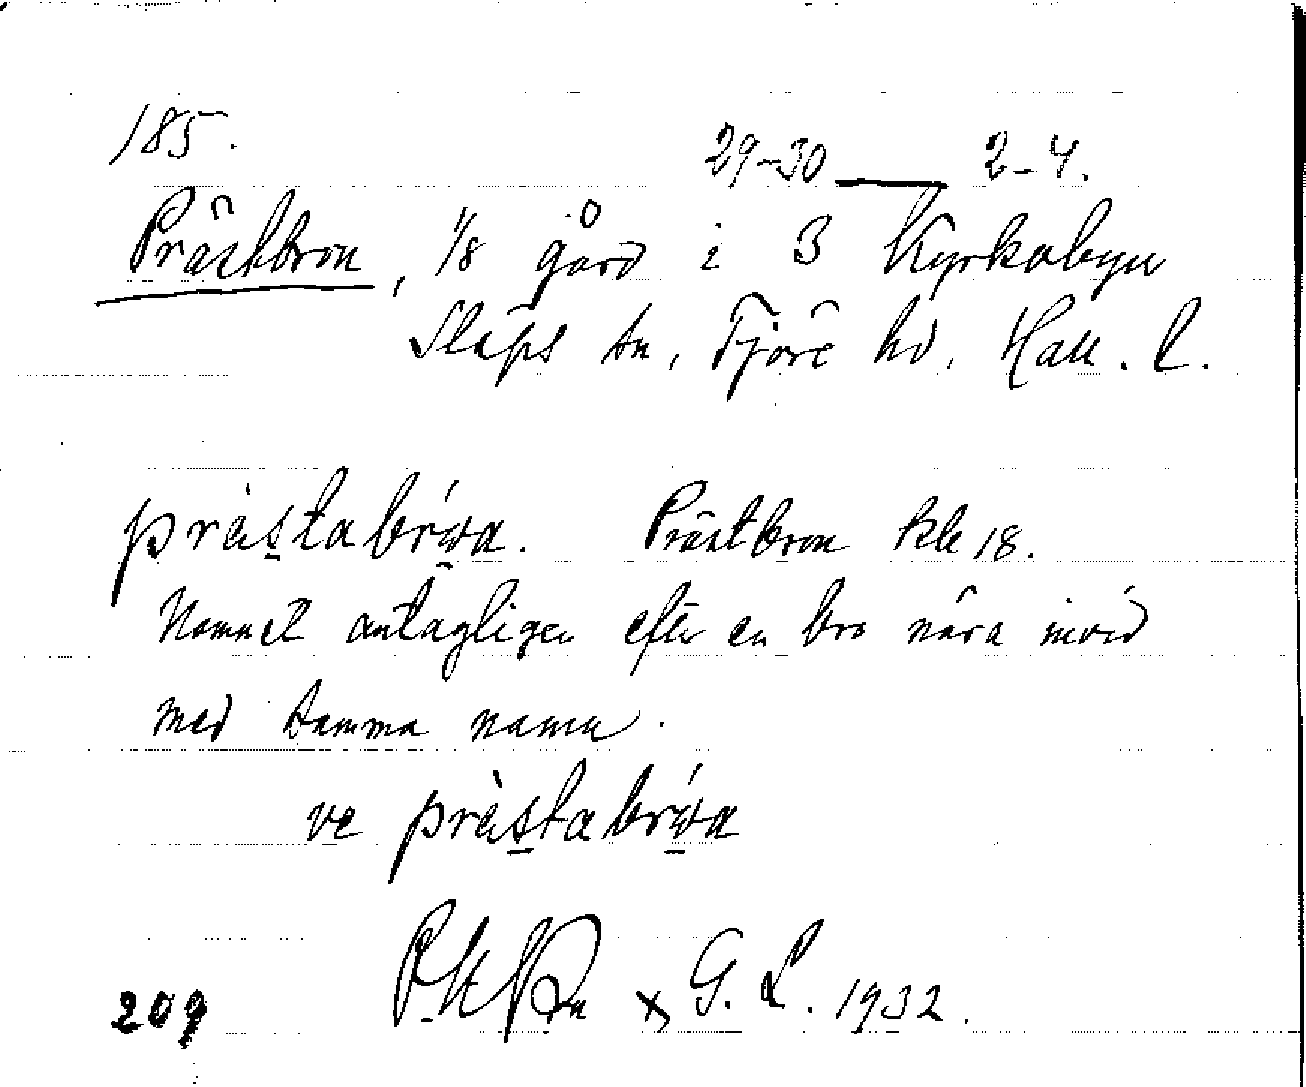 185.
29-30 — 2-4.
Prästbron, 1/8 gård i 3 Kyrkobyn
Släps sn, Fjäre hd. Hall. l.
prästabrówa. Prästbron Ekk 18.
Namnet antagligen efter en bro nära invid
med samma namn.
ve prästabrówa
x G. L. 1932.
209